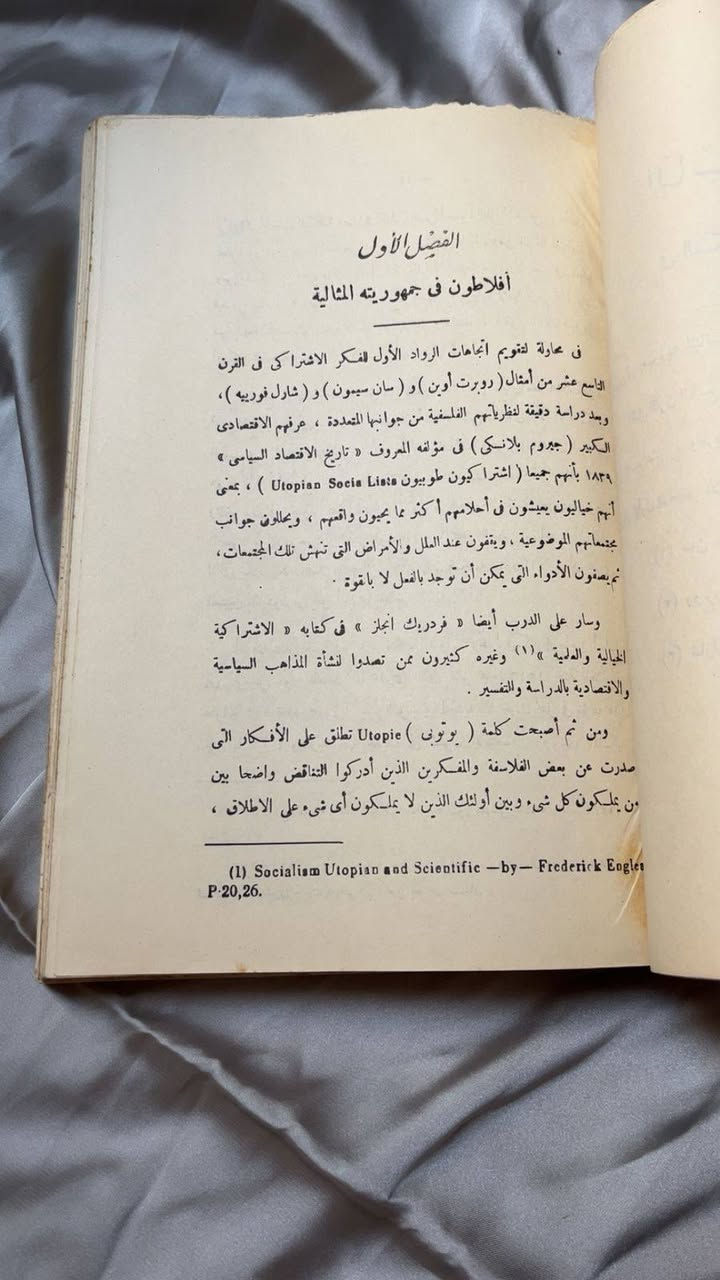 الفصل الأول
أفلاطون فى جمهوريته المثالية
فى محاولة لتقويم اتجاهات الرواد الأول للفكر الاشتراكى فى القرن
التاسع عشر من أمثال ( روبرت أوين ) و ( سان سيمون ) و ( شارل فورييه ) ،
وبعد دراسة دقيقة لنظرياتهم الفلسفية من جوانبها المتعددة ، عرفهم الاقتصادى
الكبير ( جيروم بلانسكى ) فى مؤلفه المعروف « تاريخ الاقتصاد السياسى »
١٨٣٩ بأنهم جميعا ( اشتراكيون طوبيون Utopian Socia Lists ) ، بمعنى
أنهم خياليون يعيشون فى أحلامهم أكثر مما يحيون واقعهم ، ويحللون جوانب
مجتمعاتهم الموضوعية ، ويقفون عند العلل والأمراض التى تنهش تلك المجتمعات ،
ثم يصفون الأدواء التى يمكن أن توجد بالفعل لا بالقوة .
وسار على الدرب أيضا « فردريك انجلز » فى كتابه « الاشتراكية
الخيالية والعلمية » (١) وغيره كثيرون ممن تصدوا لنشأة المذاهب السياسية
والاقتصادية بالدراسة والتفسير .
ومن ثم أصبحت كلمة ( يوتوبى ) Utopie تطلق على الأفكار التى
صدرت عن بعض الفلاسفة والمفكرين الذين أدركوا التناقض واضحا بين
من يملكون كل شىء وبين أولئك الذين لا يملكون أى شىء على الاطلاق ،
(1) Socialism Utopian and Scientific —by— Frederick Engles
P.20,26.